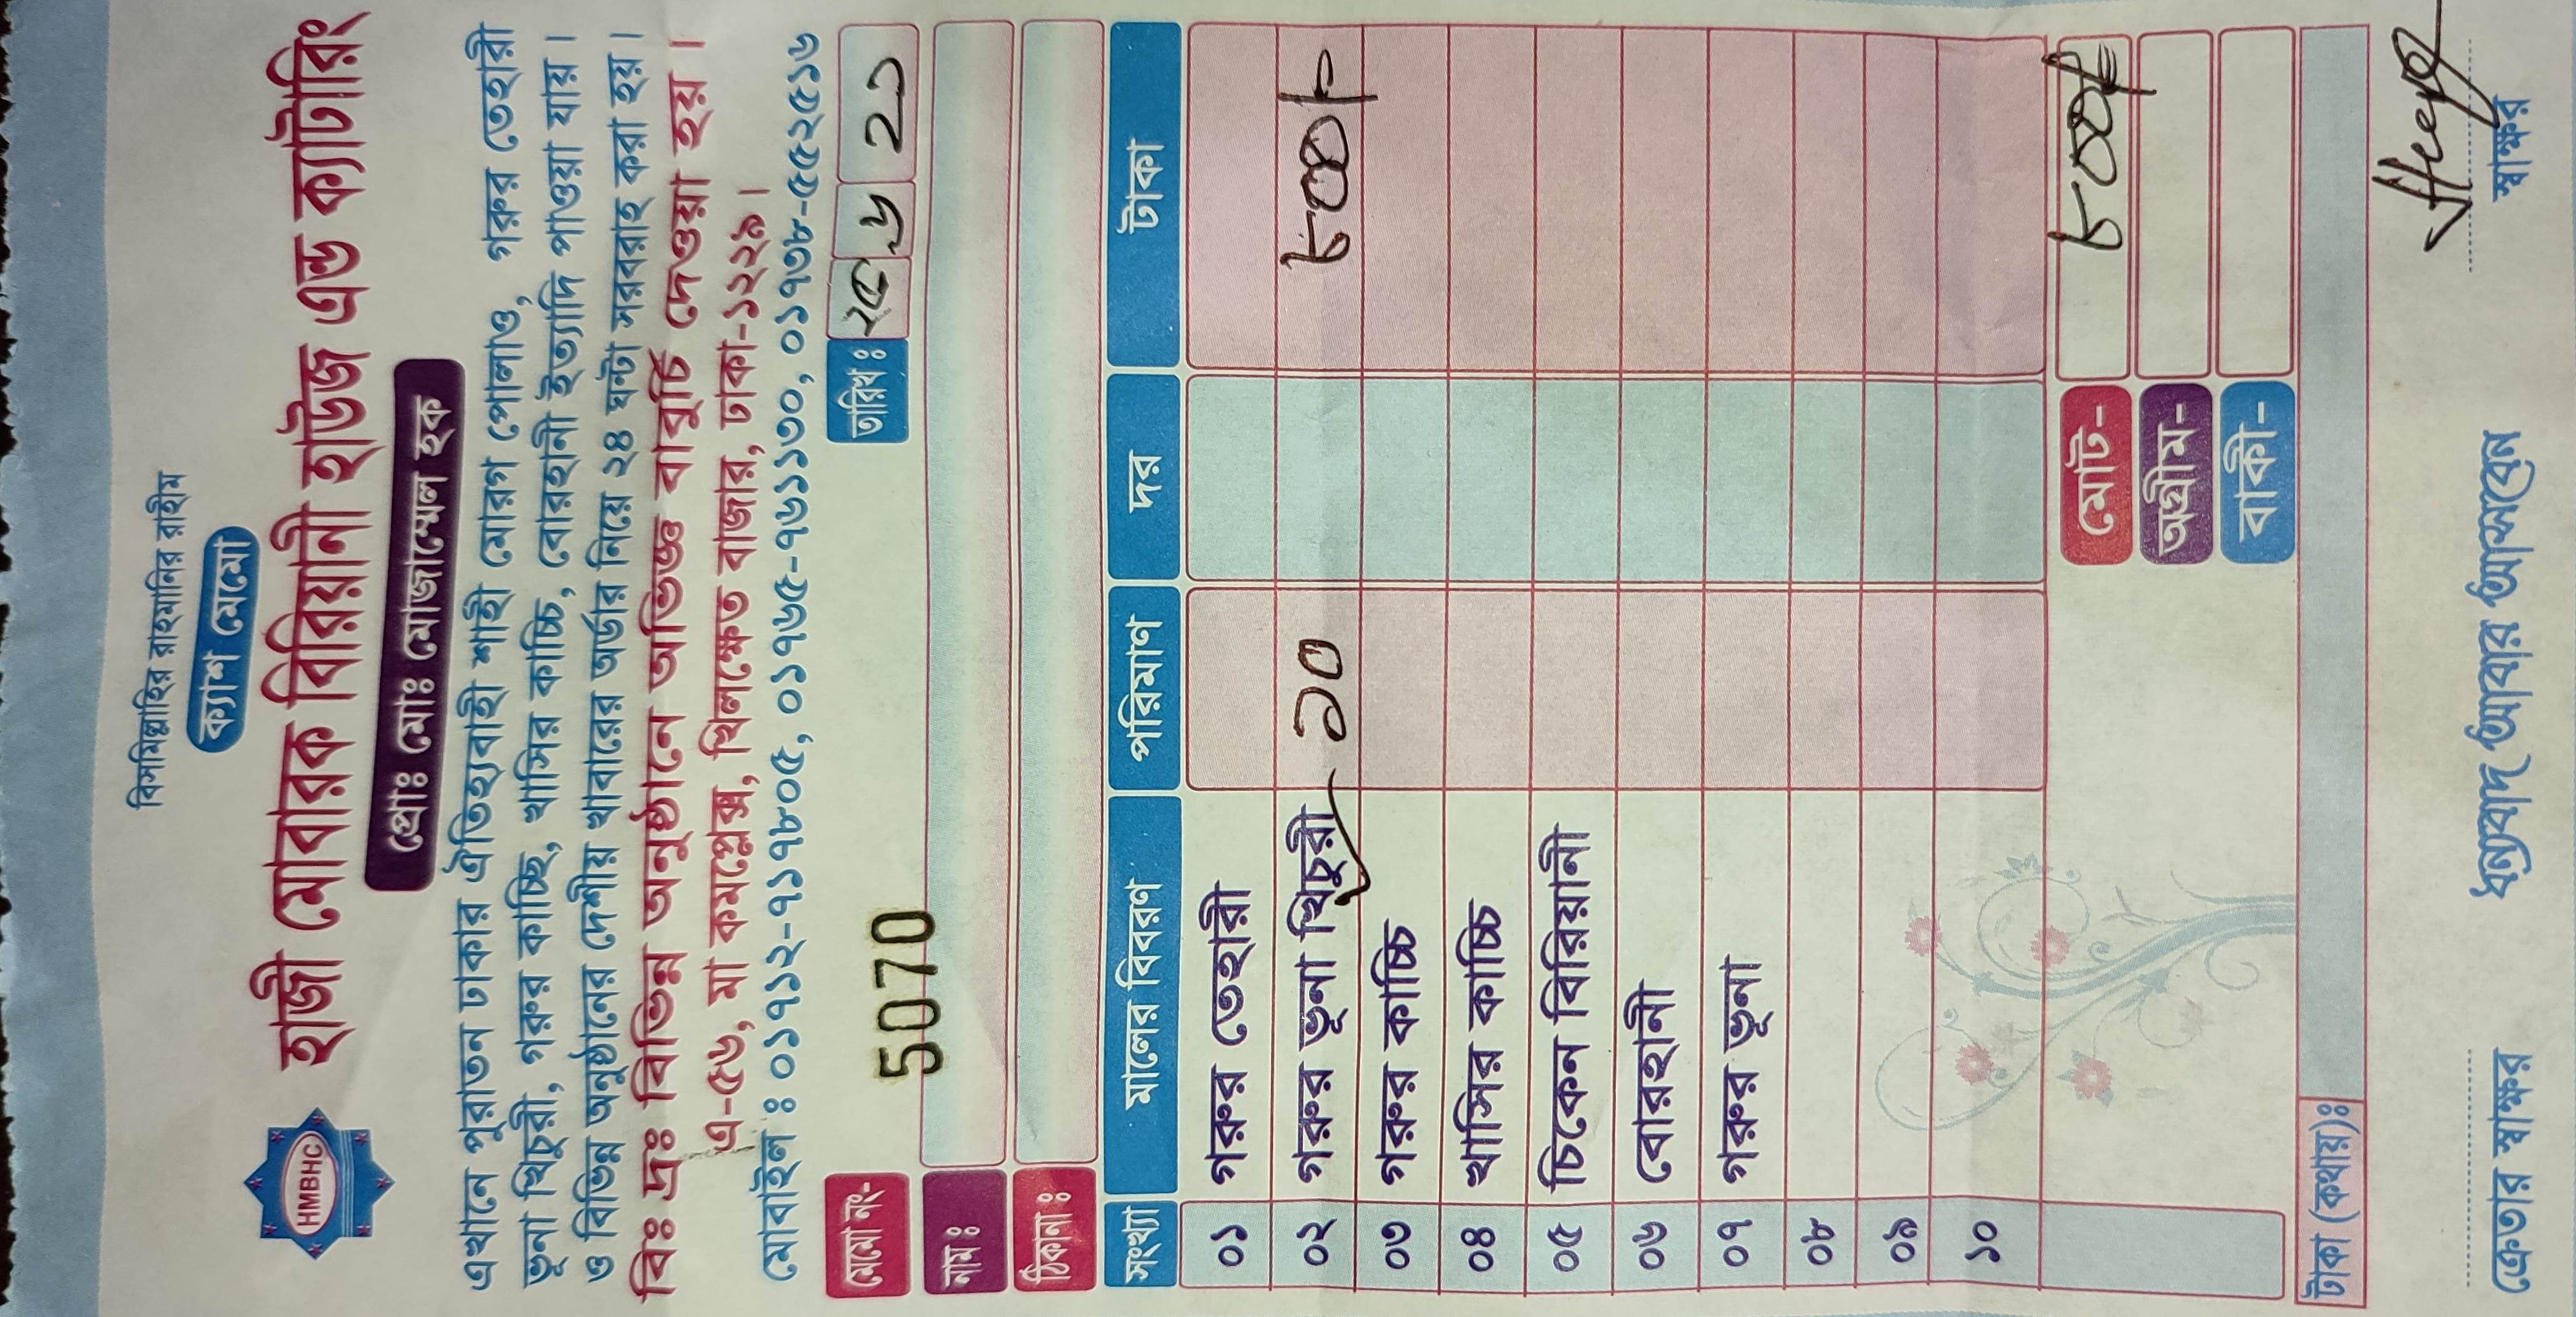 বিসমিল্লাহির রাহমানির রাহীম
ক্যাশ মেমো
HMBHC
হাজী মোবারক বিরিয়ানী হাউজ এন্ড ক্যাটারিং
প্রোঃ মোঃ মোজাম্মেল হক
এখানে পুরাতন ঢাকার ঐতিহ্যবাহী শাহী মোরগ পোলাও, গরুর তেহারী
ভূনা খিচুরী, গরুর কাচ্ছি, খাসির কাচ্চি, বোরহানী ইত্যাদি পাওয়া যায়।
ও বিভিন্ন অনুষ্ঠানের দেশীয় খাবারের অর্ডার নিয়ে ২৪ ঘন্টা সরবরাহ করা হয়।
বিঃ দ্রঃ বিভিন্ন অনুষ্ঠানে অভিজ্ঞ বাবুর্চি দেওয়া হয়।
এ-৫৬, মা কমপ্লেক্স, খিলক্ষেত বাজার, ঢাকা-১২২৯।
মোবাইল ঃ ০১৭১২-৭১৭৮০৫, ০১৭৬৫-৭৬১১৩০, ০১৭৩৮-৫৫২৫১৬
মেমো নং- 5070 তারিখ ঃ ২৫ ৬ ২১
নাম ঃ
ঠিকানা ঃ
সংখ্যা মালের বিবরণ পরিমাণ দর টাকা
০১ গরুর তেহারী
০২ গরুর ভূনা খিচুরী ১০ ৮০০/-
০৩ গরুর কাচ্চি
০৪ খাসির কাচ্চি
০৫ চিকেন বিরিয়ানী
০৬ বোরহানী
০৭ গরুর ভূনা
০৮
০৯
১০
মোট- ৮০০/=
অগ্রীম-
বাকী-
টাকা (কথায়)ঃ
ক্রেতার স্বাক্ষর ধন্যবাদ আবার আসবেন স্বাক্ষর